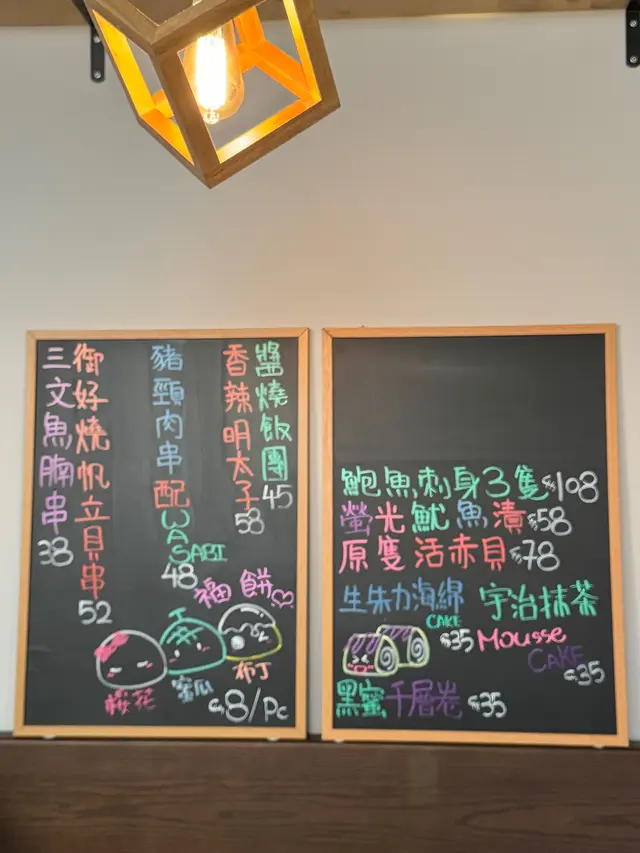 醬燒飯團
45
香辣明太子
58
豬頸肉串配WASABI
48
御好燒帆立貝串
52
三文魚腩串
38
福餅
櫻花
蜜瓜
布丁
$8/Pc
鮑魚刺身3隻$108
螢光魷魚漬$58
原隻活赤貝$78
生朱力海綿
CAKE
$35
宇治抹茶
Mousse
CAKE
$35
黑蜜千層卷 $35